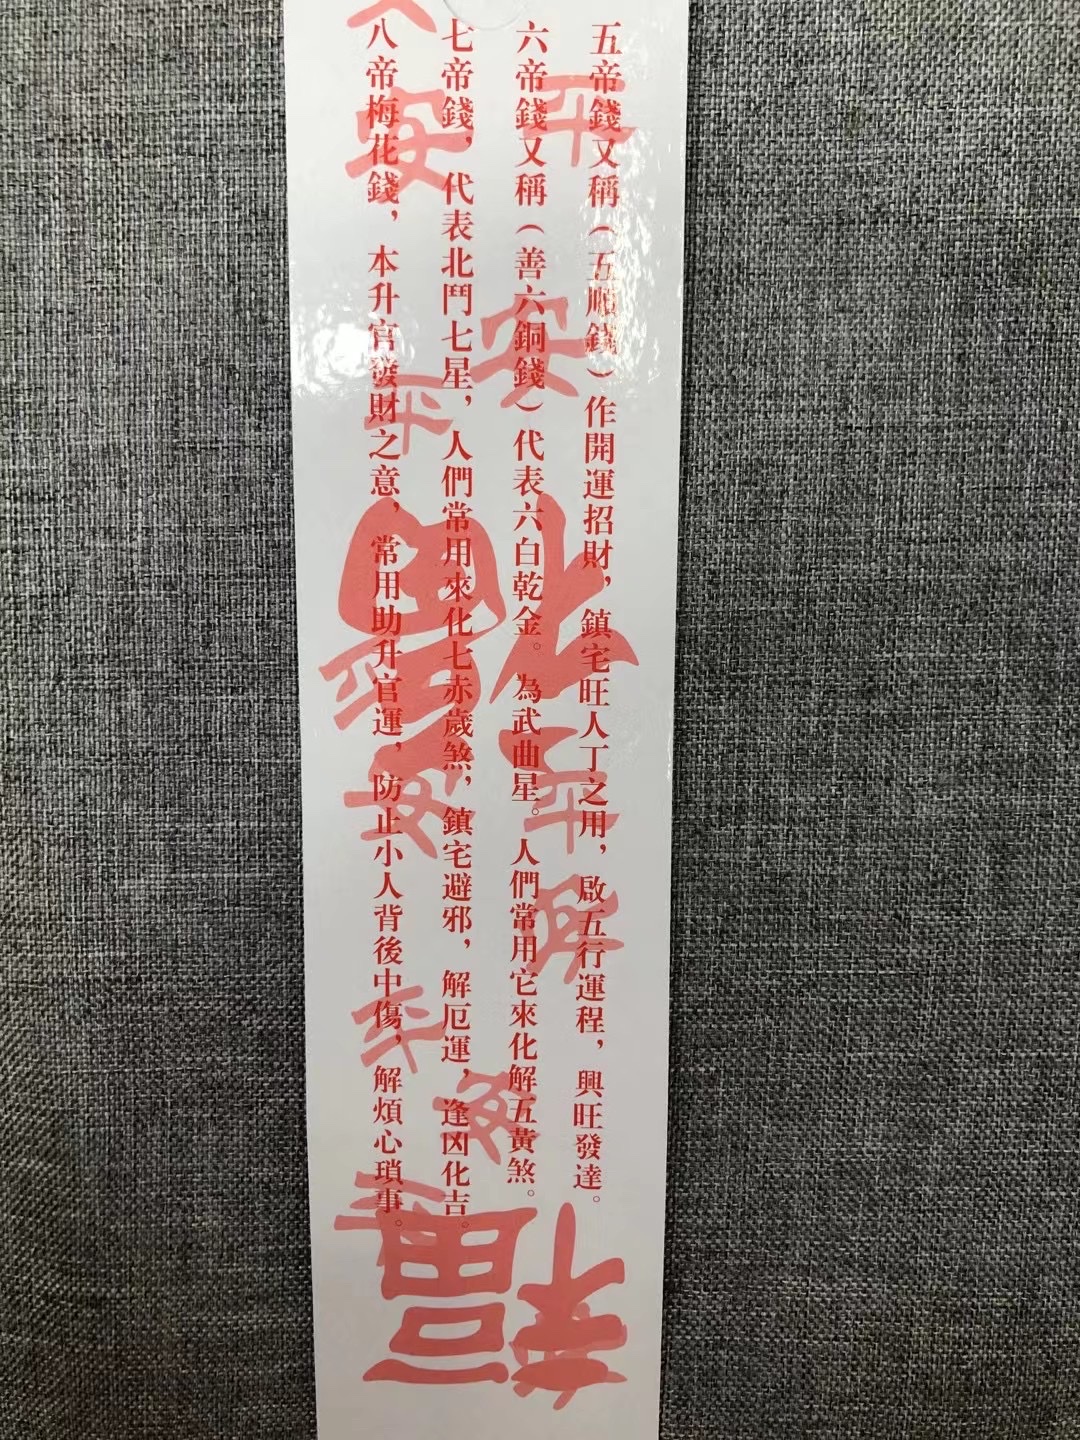 五帝錢又稱（五順錢）作開運招財，鎮宅旺人丁之用，啟五行運程，興旺發達。
六帝錢又稱（善六銅錢）代表六白乾金。為武曲星。人們常用它來化解五黃煞。
七帝錢，代表北鬥七星，人們常用來化七赤歲煞，鎮宅避邪，解厄運，逢凶化吉。
八帝梅花錢，本升官發財之意，常用助升官運，防止小人背後中傷，解煩心瑣事。
平
安
安
平
福
平
安
平
安
平
安
平
福